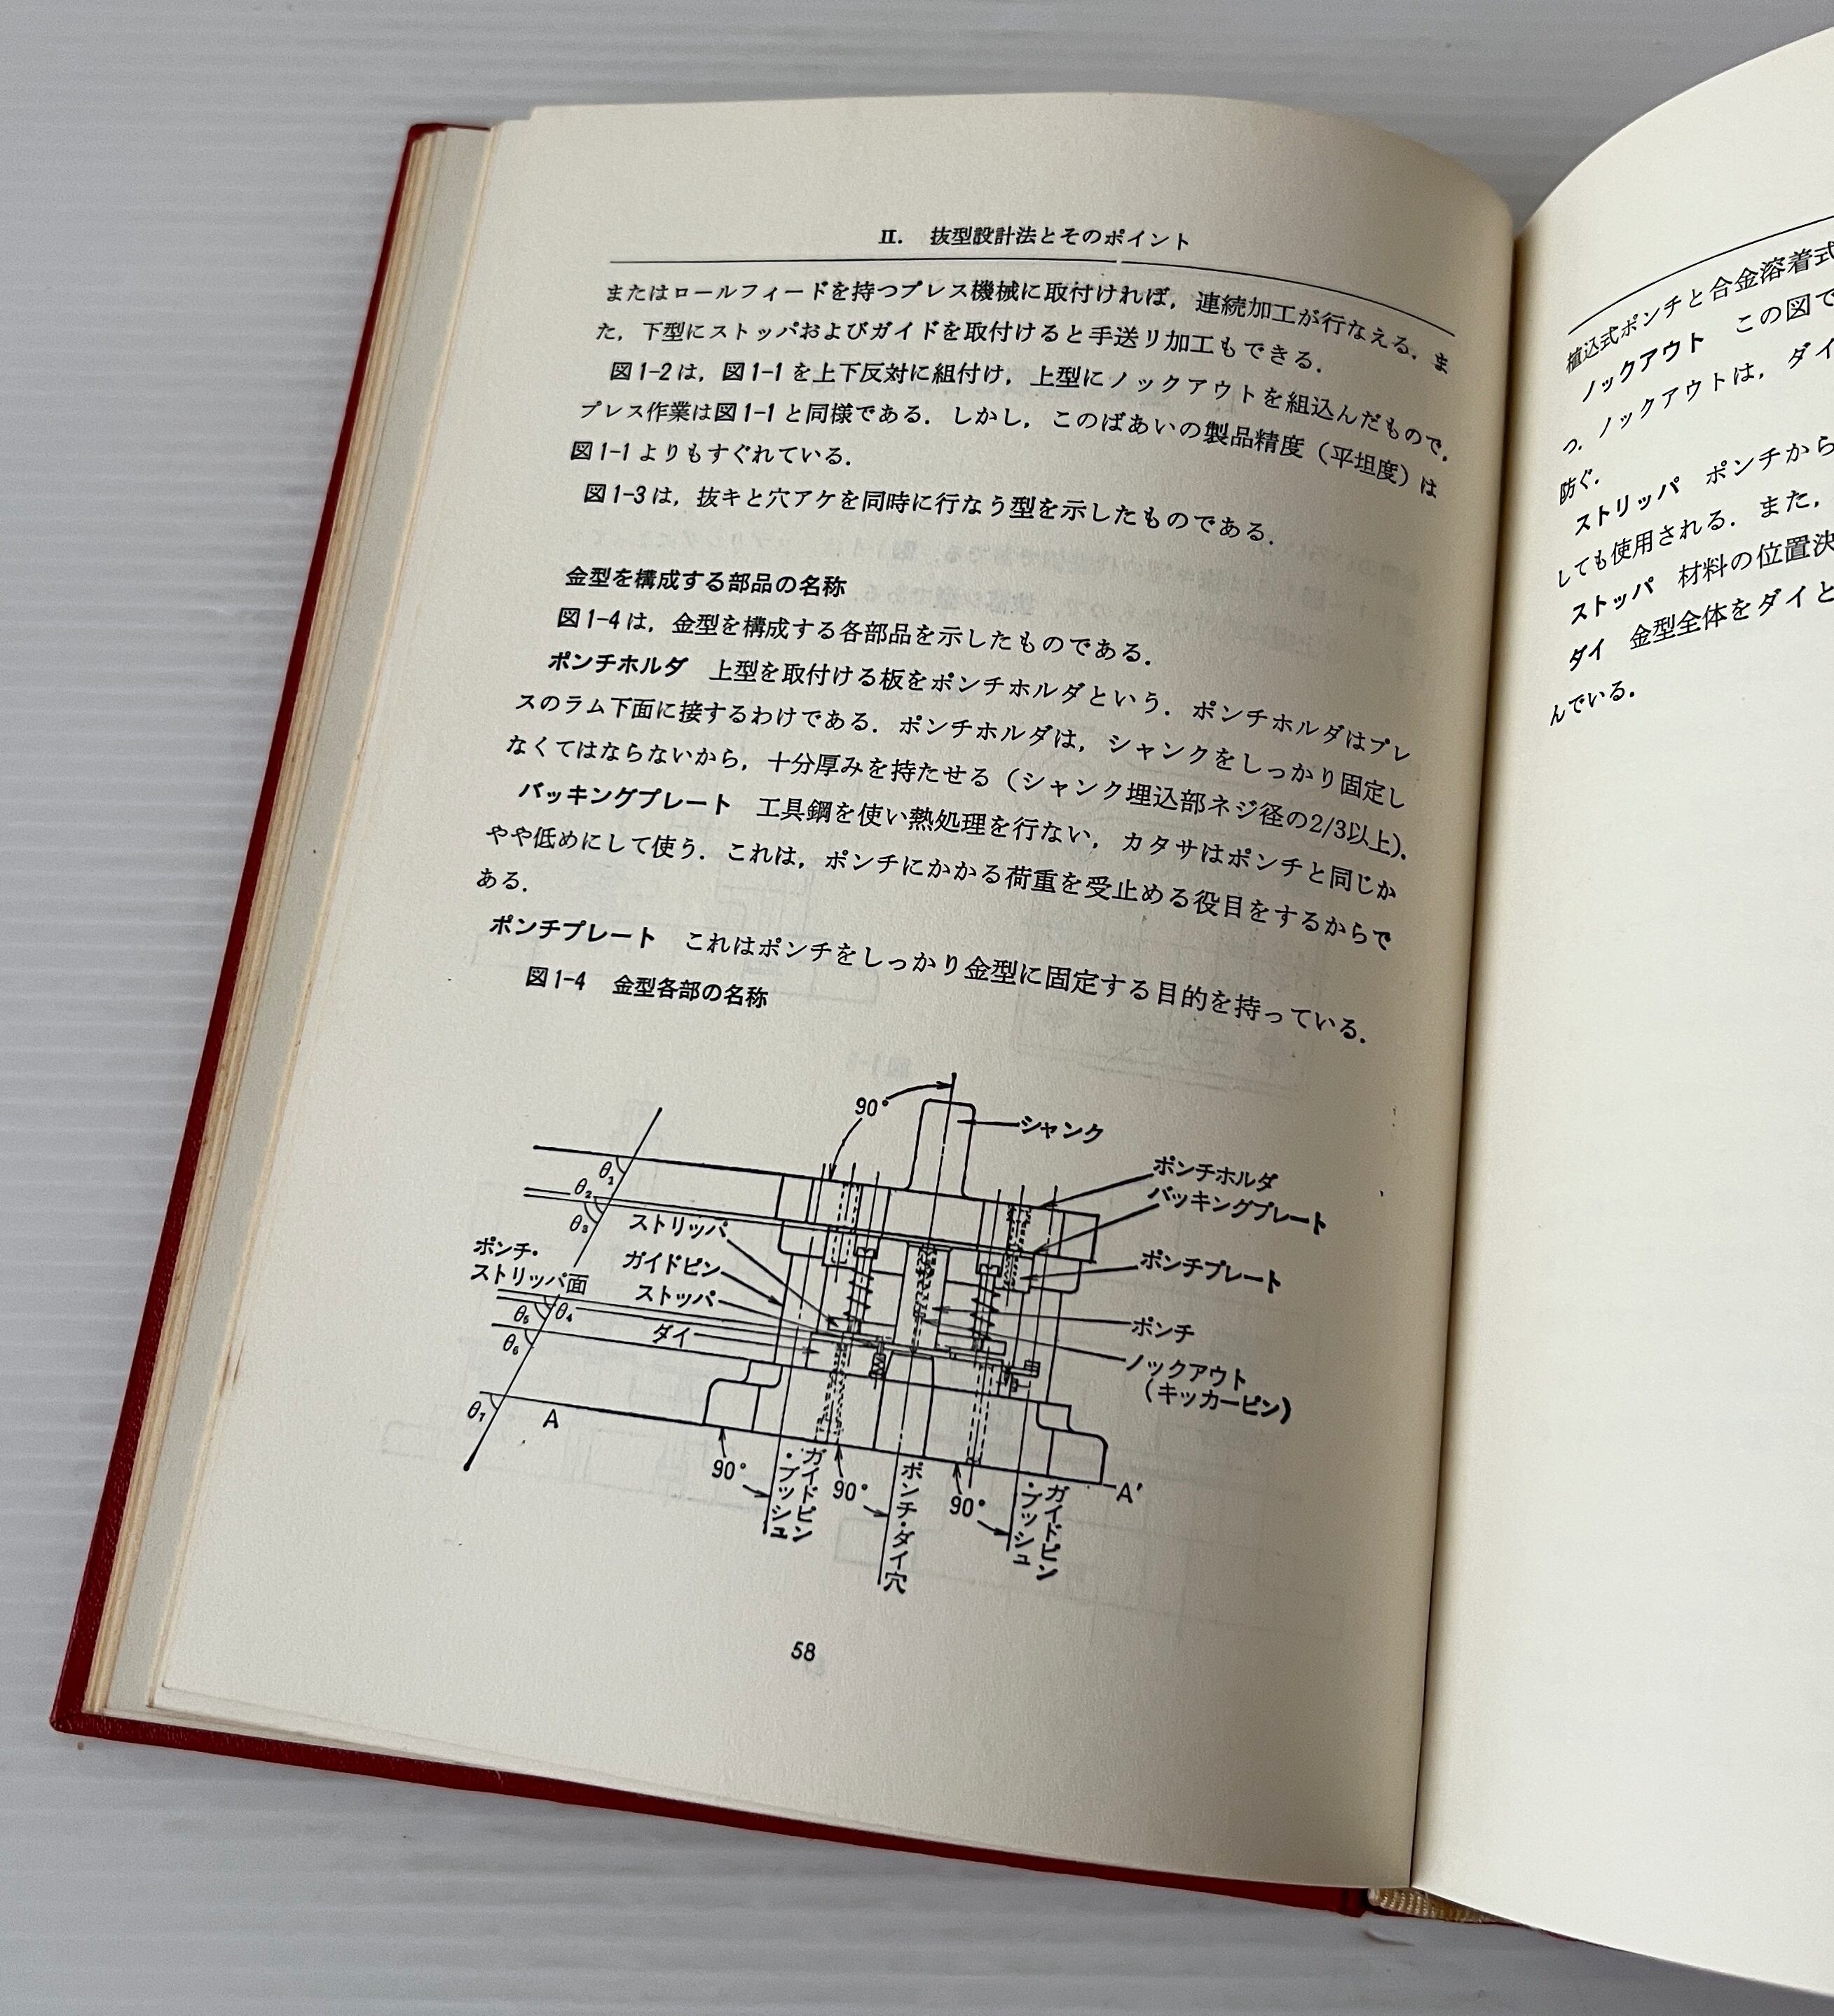 II. 抜型設計法とそのポイント
またはロールフィードを持つプレス機械に取付ければ，連続加工が行なえる．ま
た，下型にストッパおよびガイドを取付けると手送リ加工もできる．
図1-2は，図1-1を上下反対に組付け，上型にノックアウトを組込んだもので，
プレス作業は図1-1と同様である．しかし，このばあいの製品精度（平坦度）は
図1-1よりもすぐれている．
図1-3は，抜キと穴アケを同時に行なう型を示したものである．
金型を構成する部品の名称
図1-4は，金型を構成する各部品を示したものである．
ポンチホルダ 上型を取付ける板をポンチホルダという．ポンチホルダはプレ
スのラム下面に接するわけである．ポンチホルダは，シャンクをしっかり固定し
なくてはならないから，十分厚みを持たせる（シャンク埋込部ネジ径の2/3以上）．
バッキングプレート 工具鋼を使い熱処理を行ない，カタサはポンチと同じか
やや低めにして使う．これは，ポンチにかかる荷重を受止める役目をするからで
ある．
ポンチプレート これはポンチをしっかり金型に固定する目的を持っている．
図1-4 金型各部の名称
90°
シャンク
ポンチホルダ
バッキングプレート
ポンチプレート
ポンチ
ノックアウト
（キッカーピン）
θ₁
θ₂
θ₃
ストリッパ
ガイドピン
ストッパ
ダイ
ポンチ・
ストリッパ面
θ₄
θ₅
θ₆
θ₇
A
A′
90°
ガイドピン
・ブッシュ
90°
ポンチ・ダイ穴
90°
ガイドピン
・ブッシュ
58
植込式ポンチと合金溶着式
ノックアウト この図で
つ．ノックアウトは，ダイ
防ぐ．
ストリッパ ポンチから
しても使用される．また，
ストッパ 材料の位置決
ダイ 金型全体をダイと
んでいる．